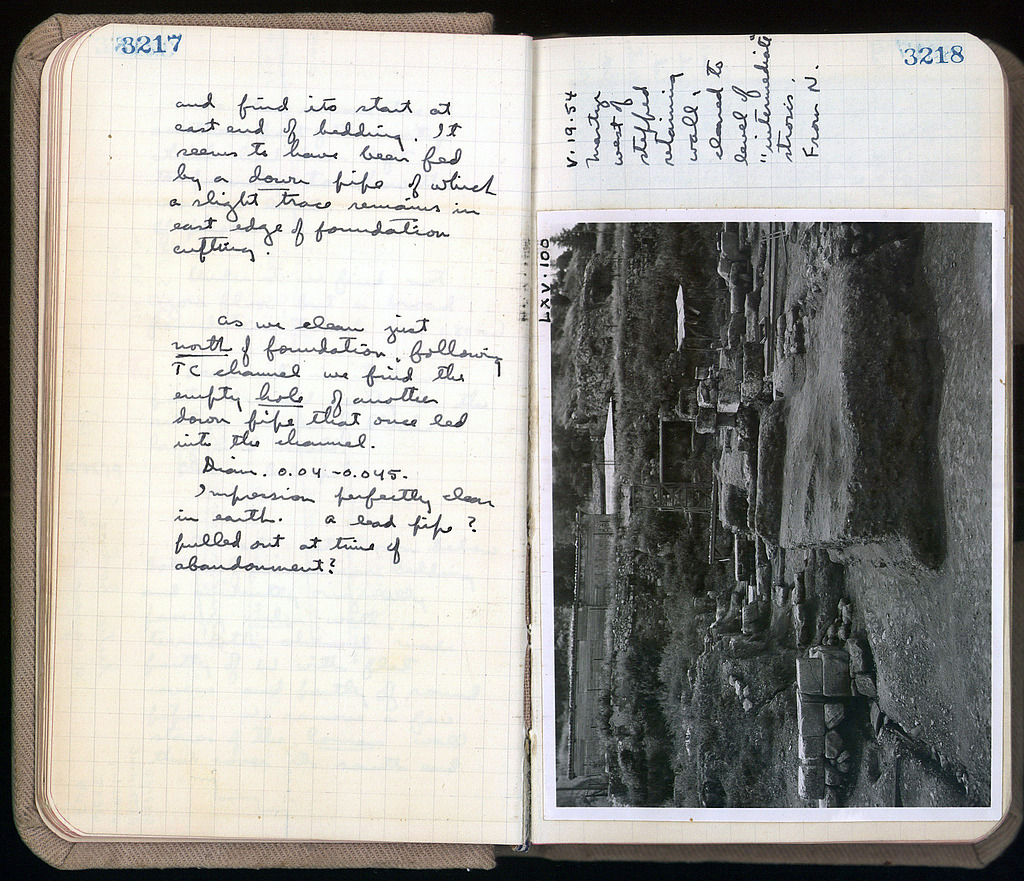 3217
and find its start at
east end of bedding. It
seems to have been fed
by a down pipe of which
a slight trace remains in
east edge of foundation
cutting.
As we clean just
north of foundation, following
TC channel we find the
empty hole of another
down pipe that once led
into the channel.
Diam. 0.04 - 0.045.
Impression perfectly clear
in earth. A lead pipe?
pulled out at time of
abandonment?
3218
V.19.54
west of
stepped
retaining
wall,
cleaned to
level of
"intermediate"
strosis.
From N.
LXV.100